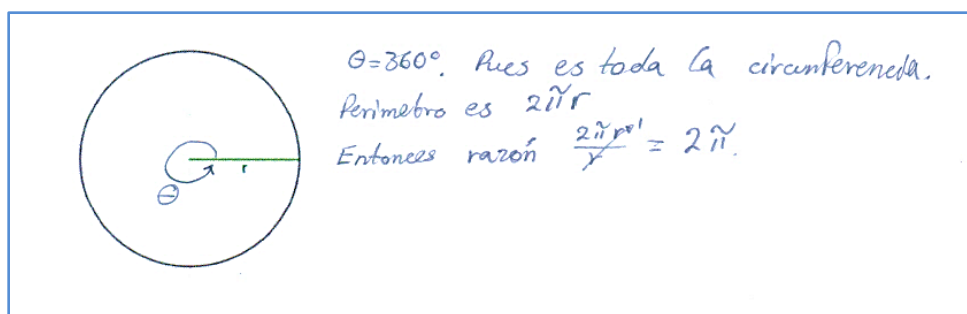 θ=360°. Pues es toda la circunferencia.
Perimetro es 2πr
Entonces razón 2πr¹/r = 2π.
r
θ